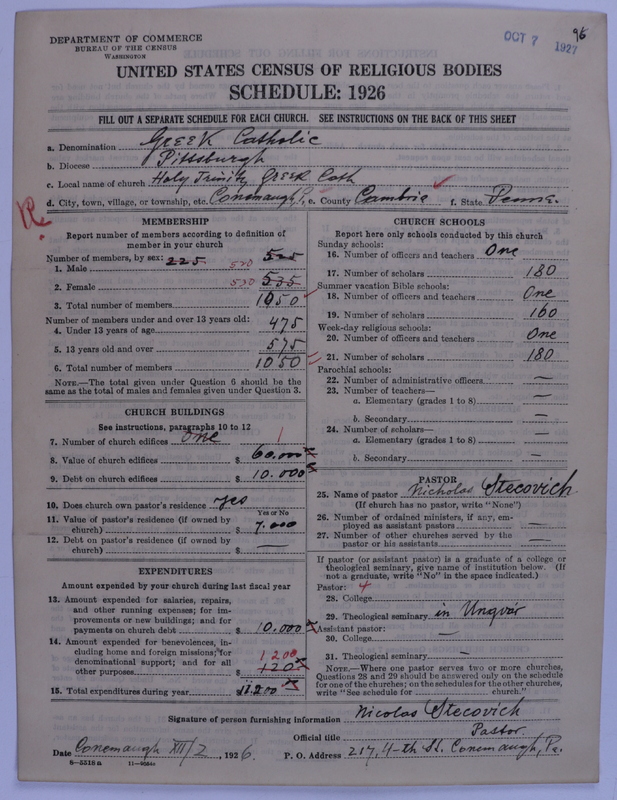 DEPARTMENT OF COMMERCE
BUREAU OF THE CENSUS
WASHINGTON
OCT 7 1927
96
UNITED STATES CENSUS OF RELIGIOUS BODIES
SCHEDULE: 1926
FILL OUT A SEPARATE SCHEDULE FOR EACH CHURCH. SEE INSTRUCTIONS ON THE BACK OF THIS SHEET
a. Denomination Greek Catholic
b. Diocese Pittsburgh
c. Local name of church Holy Trinity Greek Cath
d. City, town, village, or township, etc. Conemaugh, e. County Cambria f. State Penna.
MEMBERSHIP
Report number of members according to definition of member in your church
Number of members, by sex: 225
1. Male 520 525
2. Female 530 535
3. Total number of members 1050
Number of members under and over 13 years old:
4. Under 13 years of age 475
5. 13 years old and over 575
6. Total number of members 1050
NOTE.—The total given under Question 6 should be the same as the total of males and females given under Question 3.
CHURCH BUILDINGS
See instructions, paragraphs 10 to 12
7. Number of church edifices One 1
8. Value of church edifices $ 60.000
9. Debt on church edifices $ 10.000
10. Does church own pastor's residence yes
Yes or No
11. Value of pastor's residence (if owned by church) $ 7.000
12. Debt on pastor's residence (if owned by church) $ —
EXPENDITURES
Amount expended by your church during last fiscal year
13. Amount expended for salaries, repairs, and other running expenses; for improvements or new buildings; and for payments on church debt $ 10.000
14. Amount expended for benevolences, including home and foreign missions; for denominational support; and for all other purposes $ 1200 120
15. Total expenditures during year $ 11.200
CHURCH SCHOOLS
Report here only schools conducted by this church
Sunday schools:
16. Number of officers and teachers One
17. Number of scholars 180
Summer vacation Bible schools:
18. Number of officers and teachers One
19. Number of scholars 160
Week-day religious schools:
20. Number of officers and teachers One
21. Number of scholars 180
Parochial schools:
22. Number of administrative officers —
23. Number of teachers—
a. Elementary (grades 1 to 8) —
b. Secondary —
24. Number of scholars—
a. Elementary (grades 1 to 8) —
b. Secondary —
PASTOR
25. Name of pastor Nicholas Stecovich
(If church has no pastor, write "None")
26. Number of ordained ministers, if any, employed as assistant pastors —
27. Number of other churches served by the pastor or his assistants —
If pastor (or assistant pastor) is a graduate of a college or theological seminary, give name of institution below. (If not a graduate, write "No" in the space indicated.)
Pastor: 4
28. College
29. Theological seminary in Ungvár
Assistant pastor:
30. College —
31. Theological seminary —
NOTE.—Where one pastor serves two or more churches, Questions 28 and 29 should be answered only on the schedule for one of the churches; on the schedules for the other churches, write "See schedule for church."
Signature of person furnishing information Nicolas Stecovich
Official title Pastor.
Date Conemaugh XII/2, 1926. P. O. Address 217, 4-th St. Conemaugh, Pa.
8—5518 a